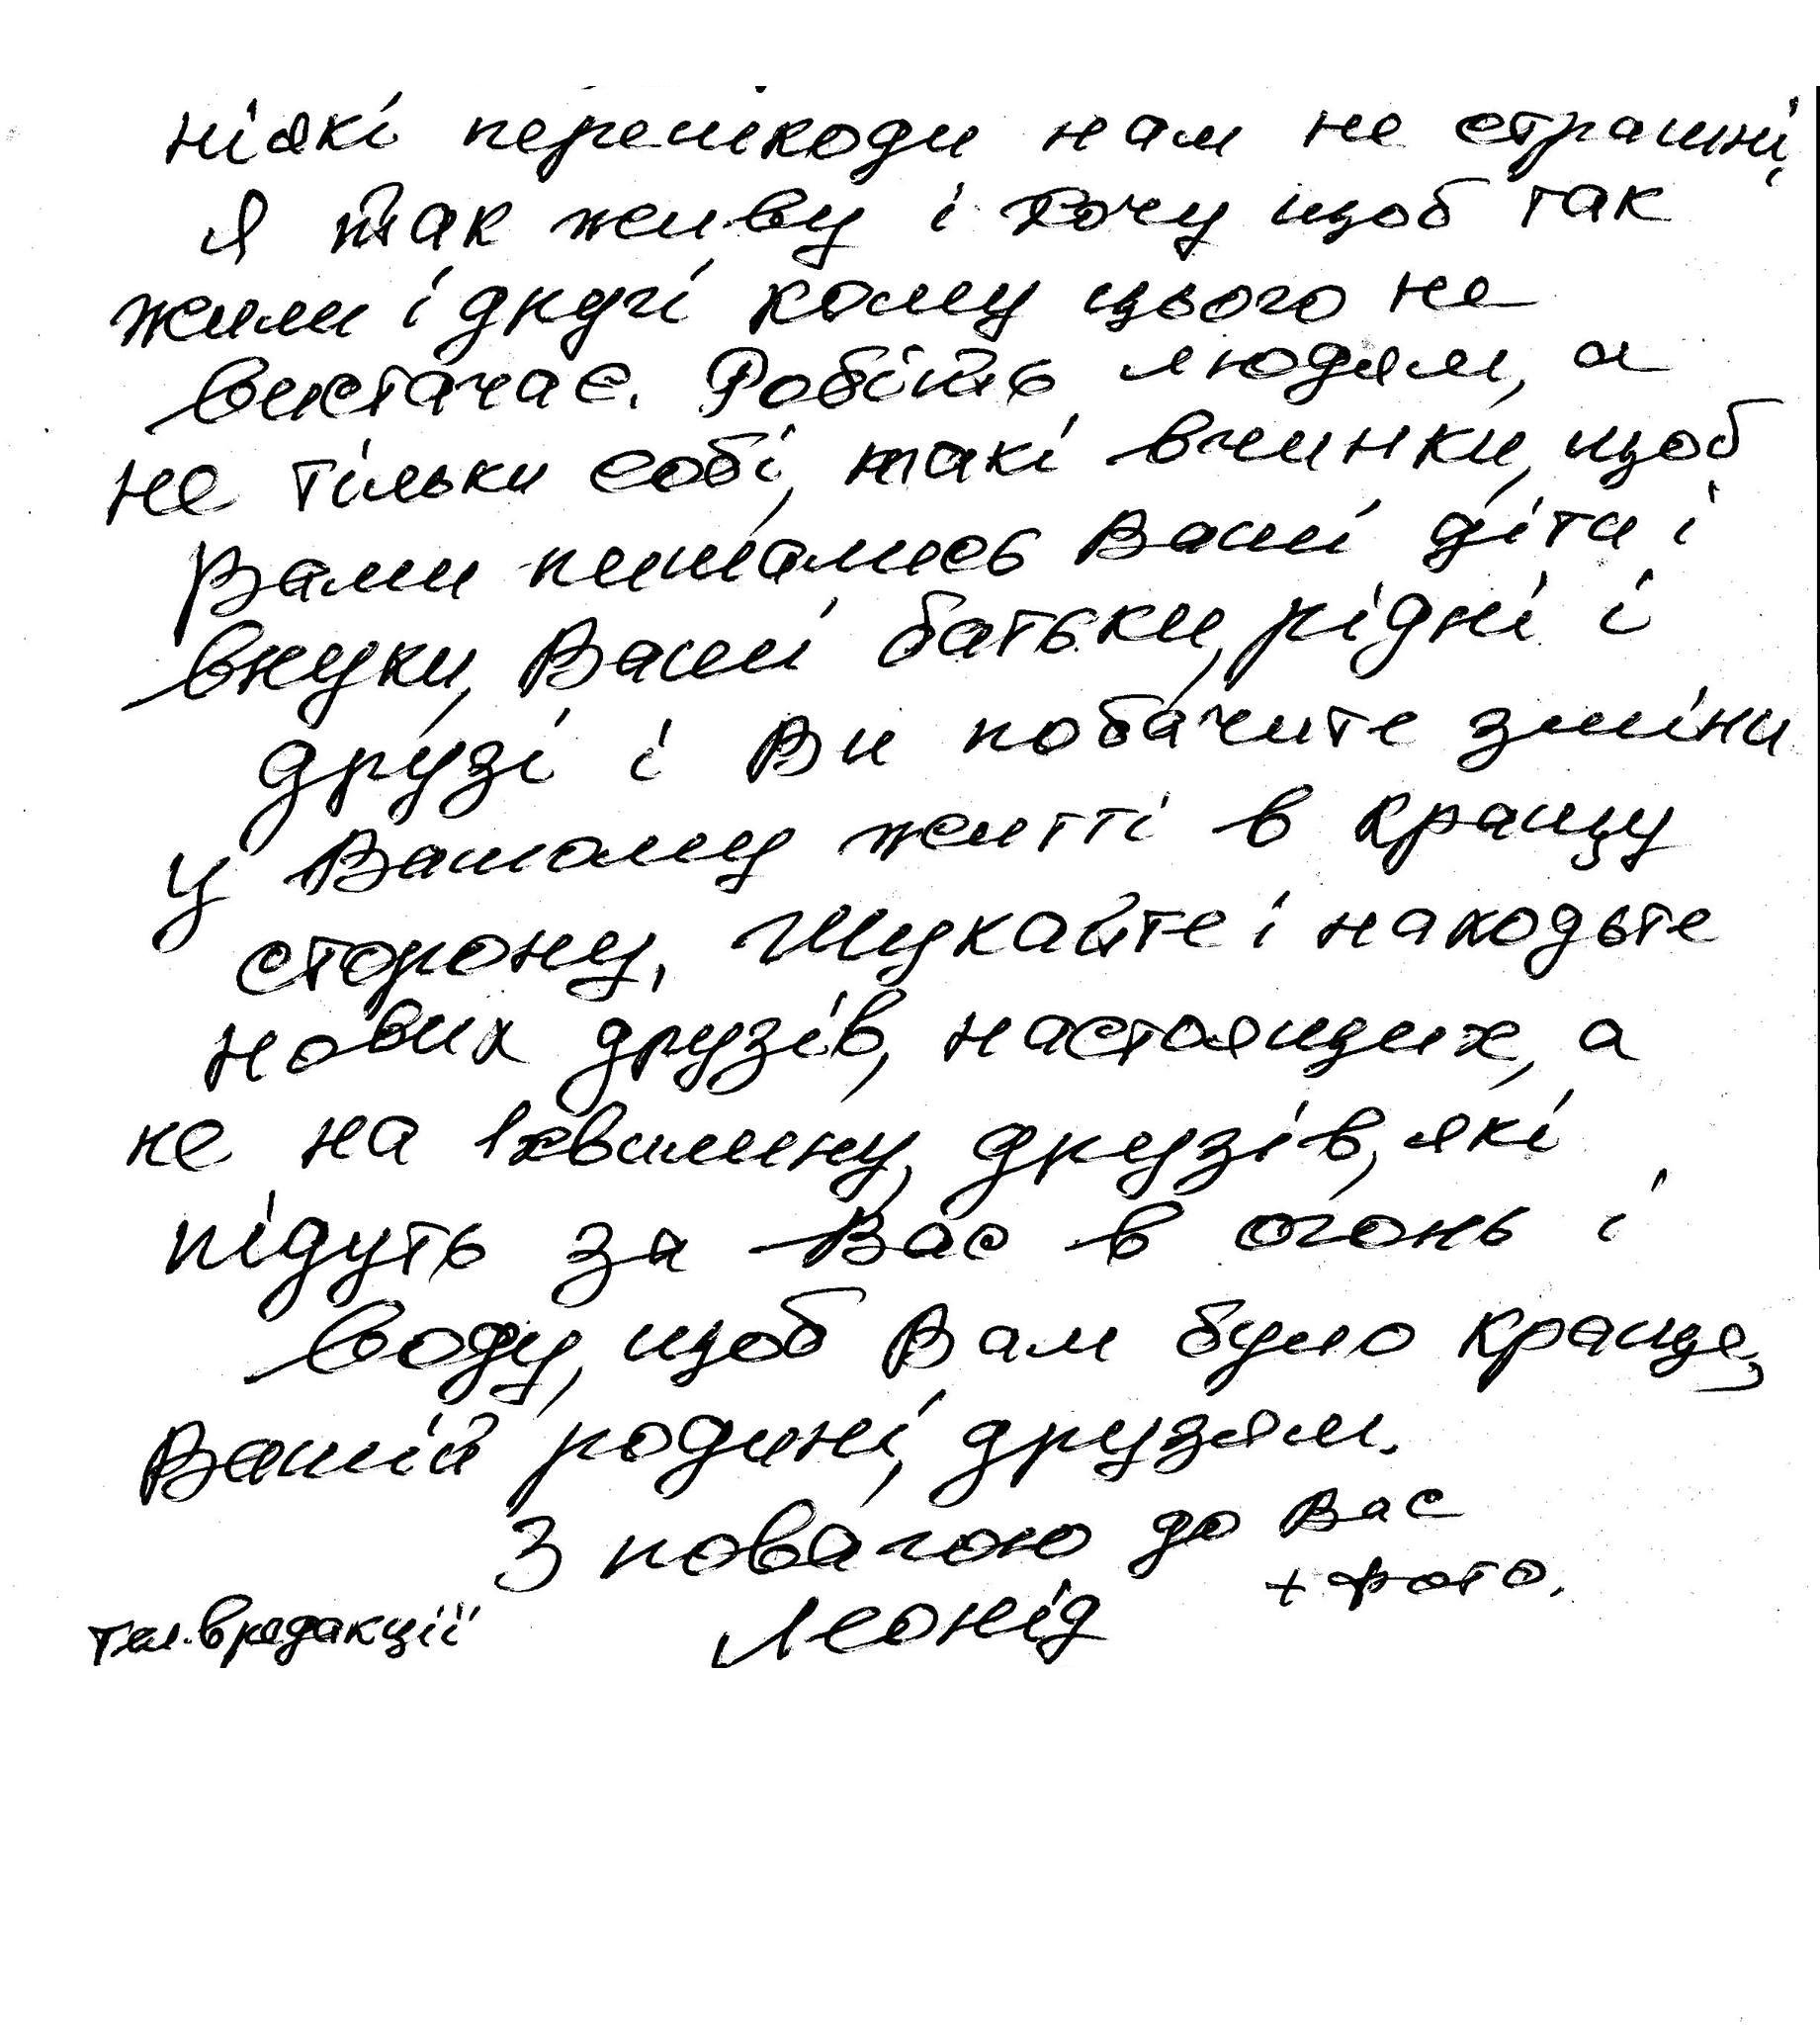 ніякі перешкоди нам не страшні,
я так живу і хочу щоб так
жили і другі кому цього не
вистачає. Робіть людям, а
не тільки собі, такі вчинки, щоб
Вами пишались Ваші діти і
внуки, Ваші батьки, рідні і
друзі і Ви побачите зміни
у Вашому житті в кращу
сторону. Шукайте і находьте
нових друзів, настоящих, а
не на 1 хвилину, друзів, які
підуть за Вас в огонь і
воду, щоб Вам було краще,
Вашій родині, друзям.
З повагою до Вас
+ фото.
Леонід
тел. в редакції